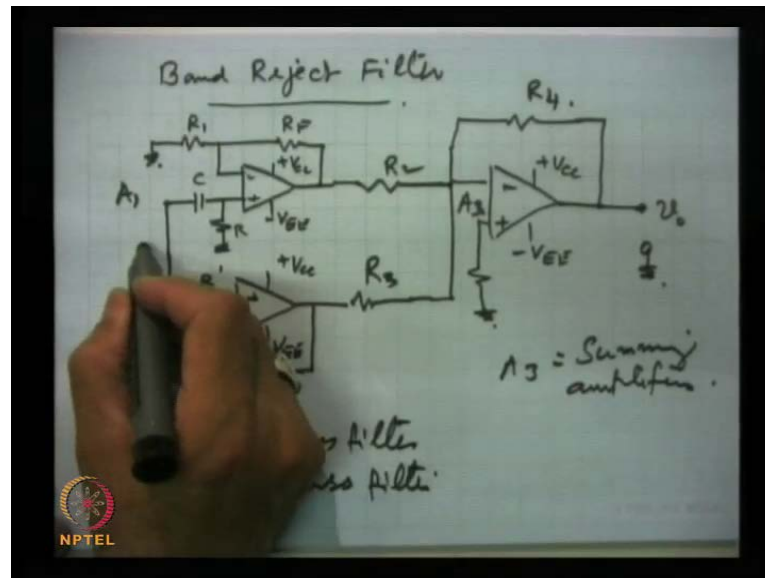 Band Reject Filter
R4.
R1
RF
+VCC
C
A1
R
-VEE
R2
+VCC
A3
-VEE
v0
R'
+VCC
R3
VEE
A3 = Summing
amplifier.
filter
pass filter
NPTEL